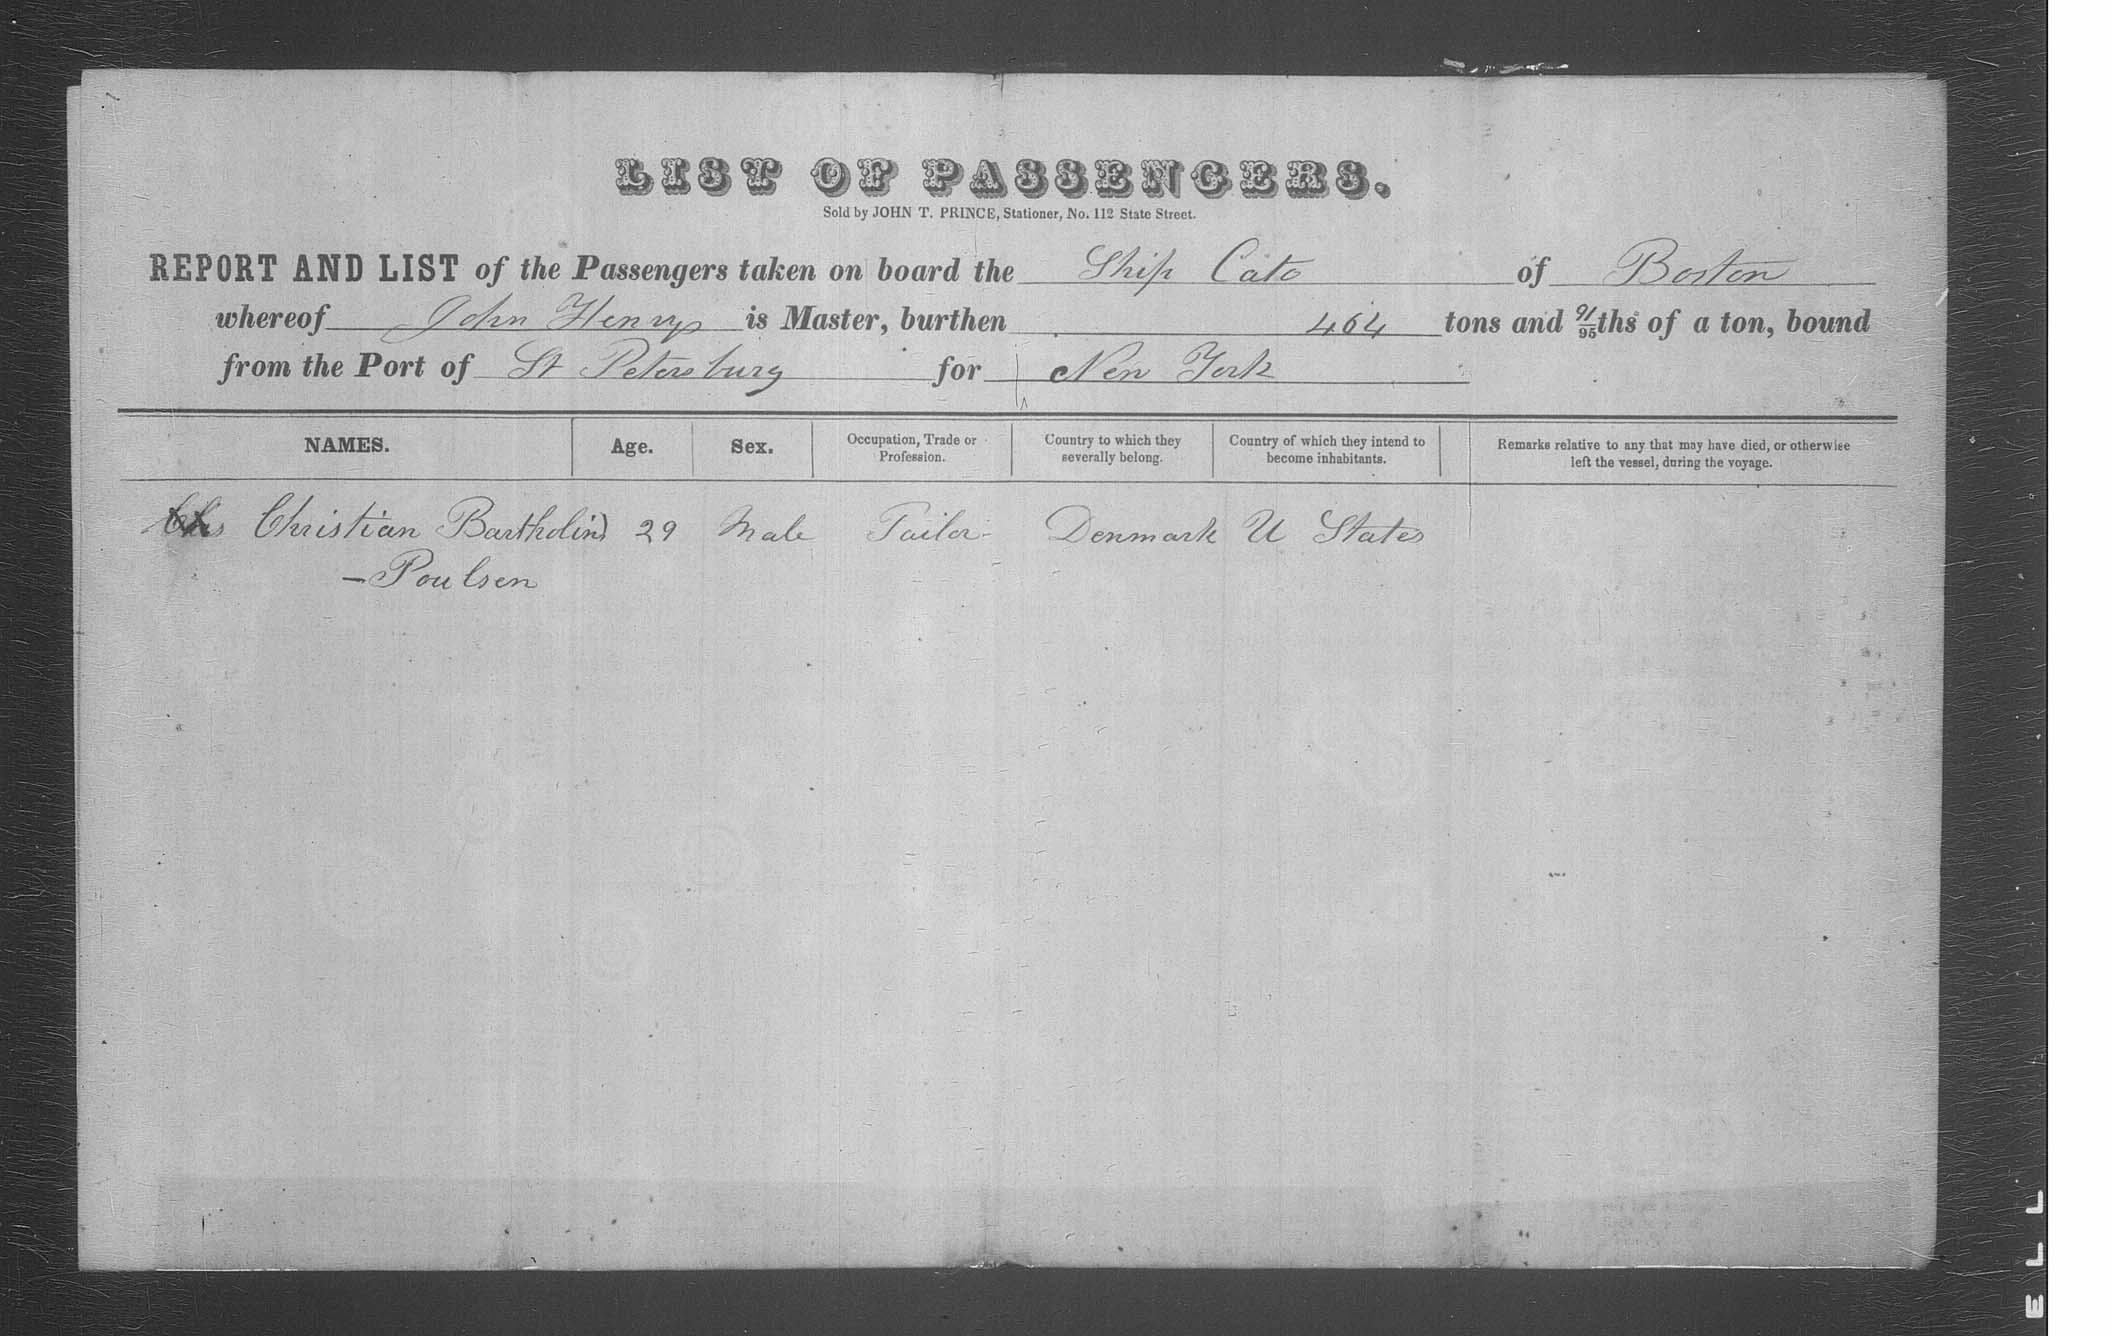 LIST OF PASSENGERS.
Sold by JOHN T. PRINCE, Stationer, No. 112 State Street.
REPORT AND LIST of the Passengers taken on board the Ship Cato of Boston
whereof John Henry is Master, burthen 464 tons and 91/95ths of a ton, bound
from the Port of St Petersburg for New York
NAMES. Age. Sex. Occupation, Trade or Profession. Country to which they severally belong. Country of which they intend to become inhabitants. Remarks relative to any that may have died, or otherwise left the vessel, during the voyage.
Christian Bartholin 29 Male Tailor Denmark U States
—Poulsen
ELL